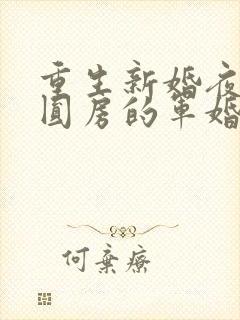 重生新婚夜
圆房的军婚
何弃疗